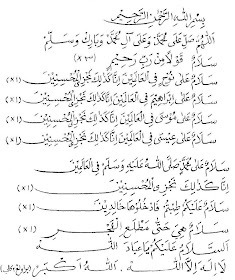 بِسْمِ اللهِ الرَّحْمٰنِ الرَّحِيْمِ
اَللّٰهُمَّ صَلِّ عَلٰى مُحَمَّدٍ وَعَلٰى آلِ مُحَمَّدٍ وَبَارِكْ وَسَلِّمْ
سَلَامٌ قَوْلًا مِنْ رَبٍّ رَحِيْمٍ (×٣)
سَلَامٌ عَلٰى نُوْحٍ فِي الْعَالَمِيْنَ اِنَّا كَذٰلِكَ نَجْزِي الْمُحْسِنِيْنَ (×١)
سَلَامٌ عَلٰى اِبْرَاهِيْمَ فِي الْعَالَمِيْنَ اِنَّا كَذٰلِكَ نَجْزِي الْمُحْسِنِيْنَ (×١)
سَلَامٌ عَلٰى مُوْسٰى فِي الْعَالَمِيْنَ اِنَّا كَذٰلِكَ نَجْزِي الْمُحْسِنِيْنَ (×١)
سَلَامٌ عَلٰى عِيْسٰى فِي الْعَالَمِيْنَ اِنَّا كَذٰلِكَ نَجْزِي الْمُحْسِنِيْنَ (×١)
سَلَامٌ عَلٰى مُحَمَّدٍ صَلَّى اللهُ عَلَيْهِ وَسَلَّمَ فِي الْعَالَمِيْنَ
اِنَّا كَذٰلِكَ نَجْزِي الْمُحْسِنِيْنَ (×١)
سَلَامٌ عَلَيْكُمْ طِبْتُمْ فَادْخُلُوْهَا خَالِدِيْنَ (×١)
سَلَامٌ هِيَ حَتّٰى مَطْلَعِ الْفَجْرِ (×١)
اَلسَّلَامُ عَلَيْكُمْ يَا عِبَادَ اللهِ
لَا اِلٰهَ اِلَّا اللهُ اَللهُ اَكْبَرُ